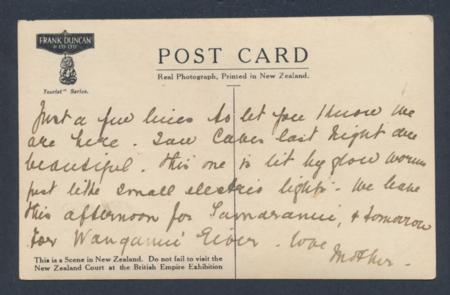 FRANK DUNCAN
& CO LTD
Tourist" Series.
POST CARD
Real Photograph, Printed in New Zealand.
Just a few lines to let you know we
are here. Saw Caves last night are
beautiful. this one is lit by glow worms
just like small electric lights. We leave
this afternoon for & tomorrow
for Wanganui River. love
Mother.
This is a Scene in New Zealand. Do not fail to visit the
New Zealand Court at the British Empire Exhibition